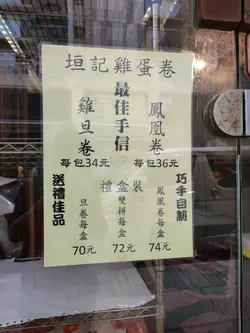 垣記雞蛋卷
最佳手信
鳳凰卷
每包36元
雞旦卷
每包34元
巧手自制
禮盒裝
鳳凰卷每盒
74元
雙拼每盒
72元
旦卷每盒
70元
送禮佳品